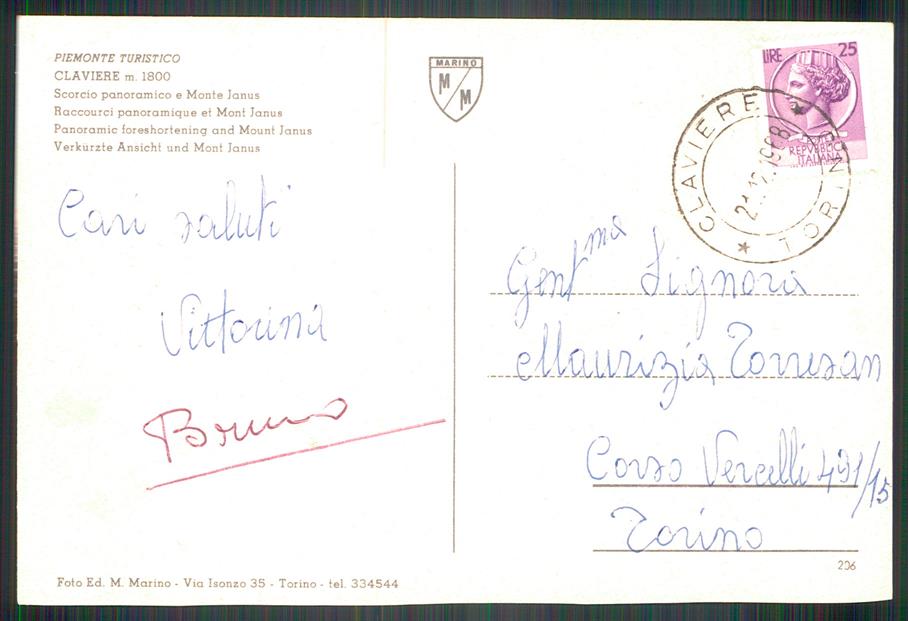 PIEMONTE TURISTICO
CLAVIERE m. 1800
Scorcio panoramico e Monte Janus
Raccourci panoramique et Mont Janus
Panoramic foreshortening and Mount Janus
Verkürzte Ansicht und Mont Janus
MARINO
M M
LIRE 25
REPVBBLICA
ITALIANA
CLAVIERE
TORINO
Cari saluti
Vittorina
Bruno
Gentma Signora
Maurizia Torresan
Corso Vercelli 491/15
Torino
206
Foto Ed. M. Marino - Via Isonzo 35 - Torino - tel. 334544